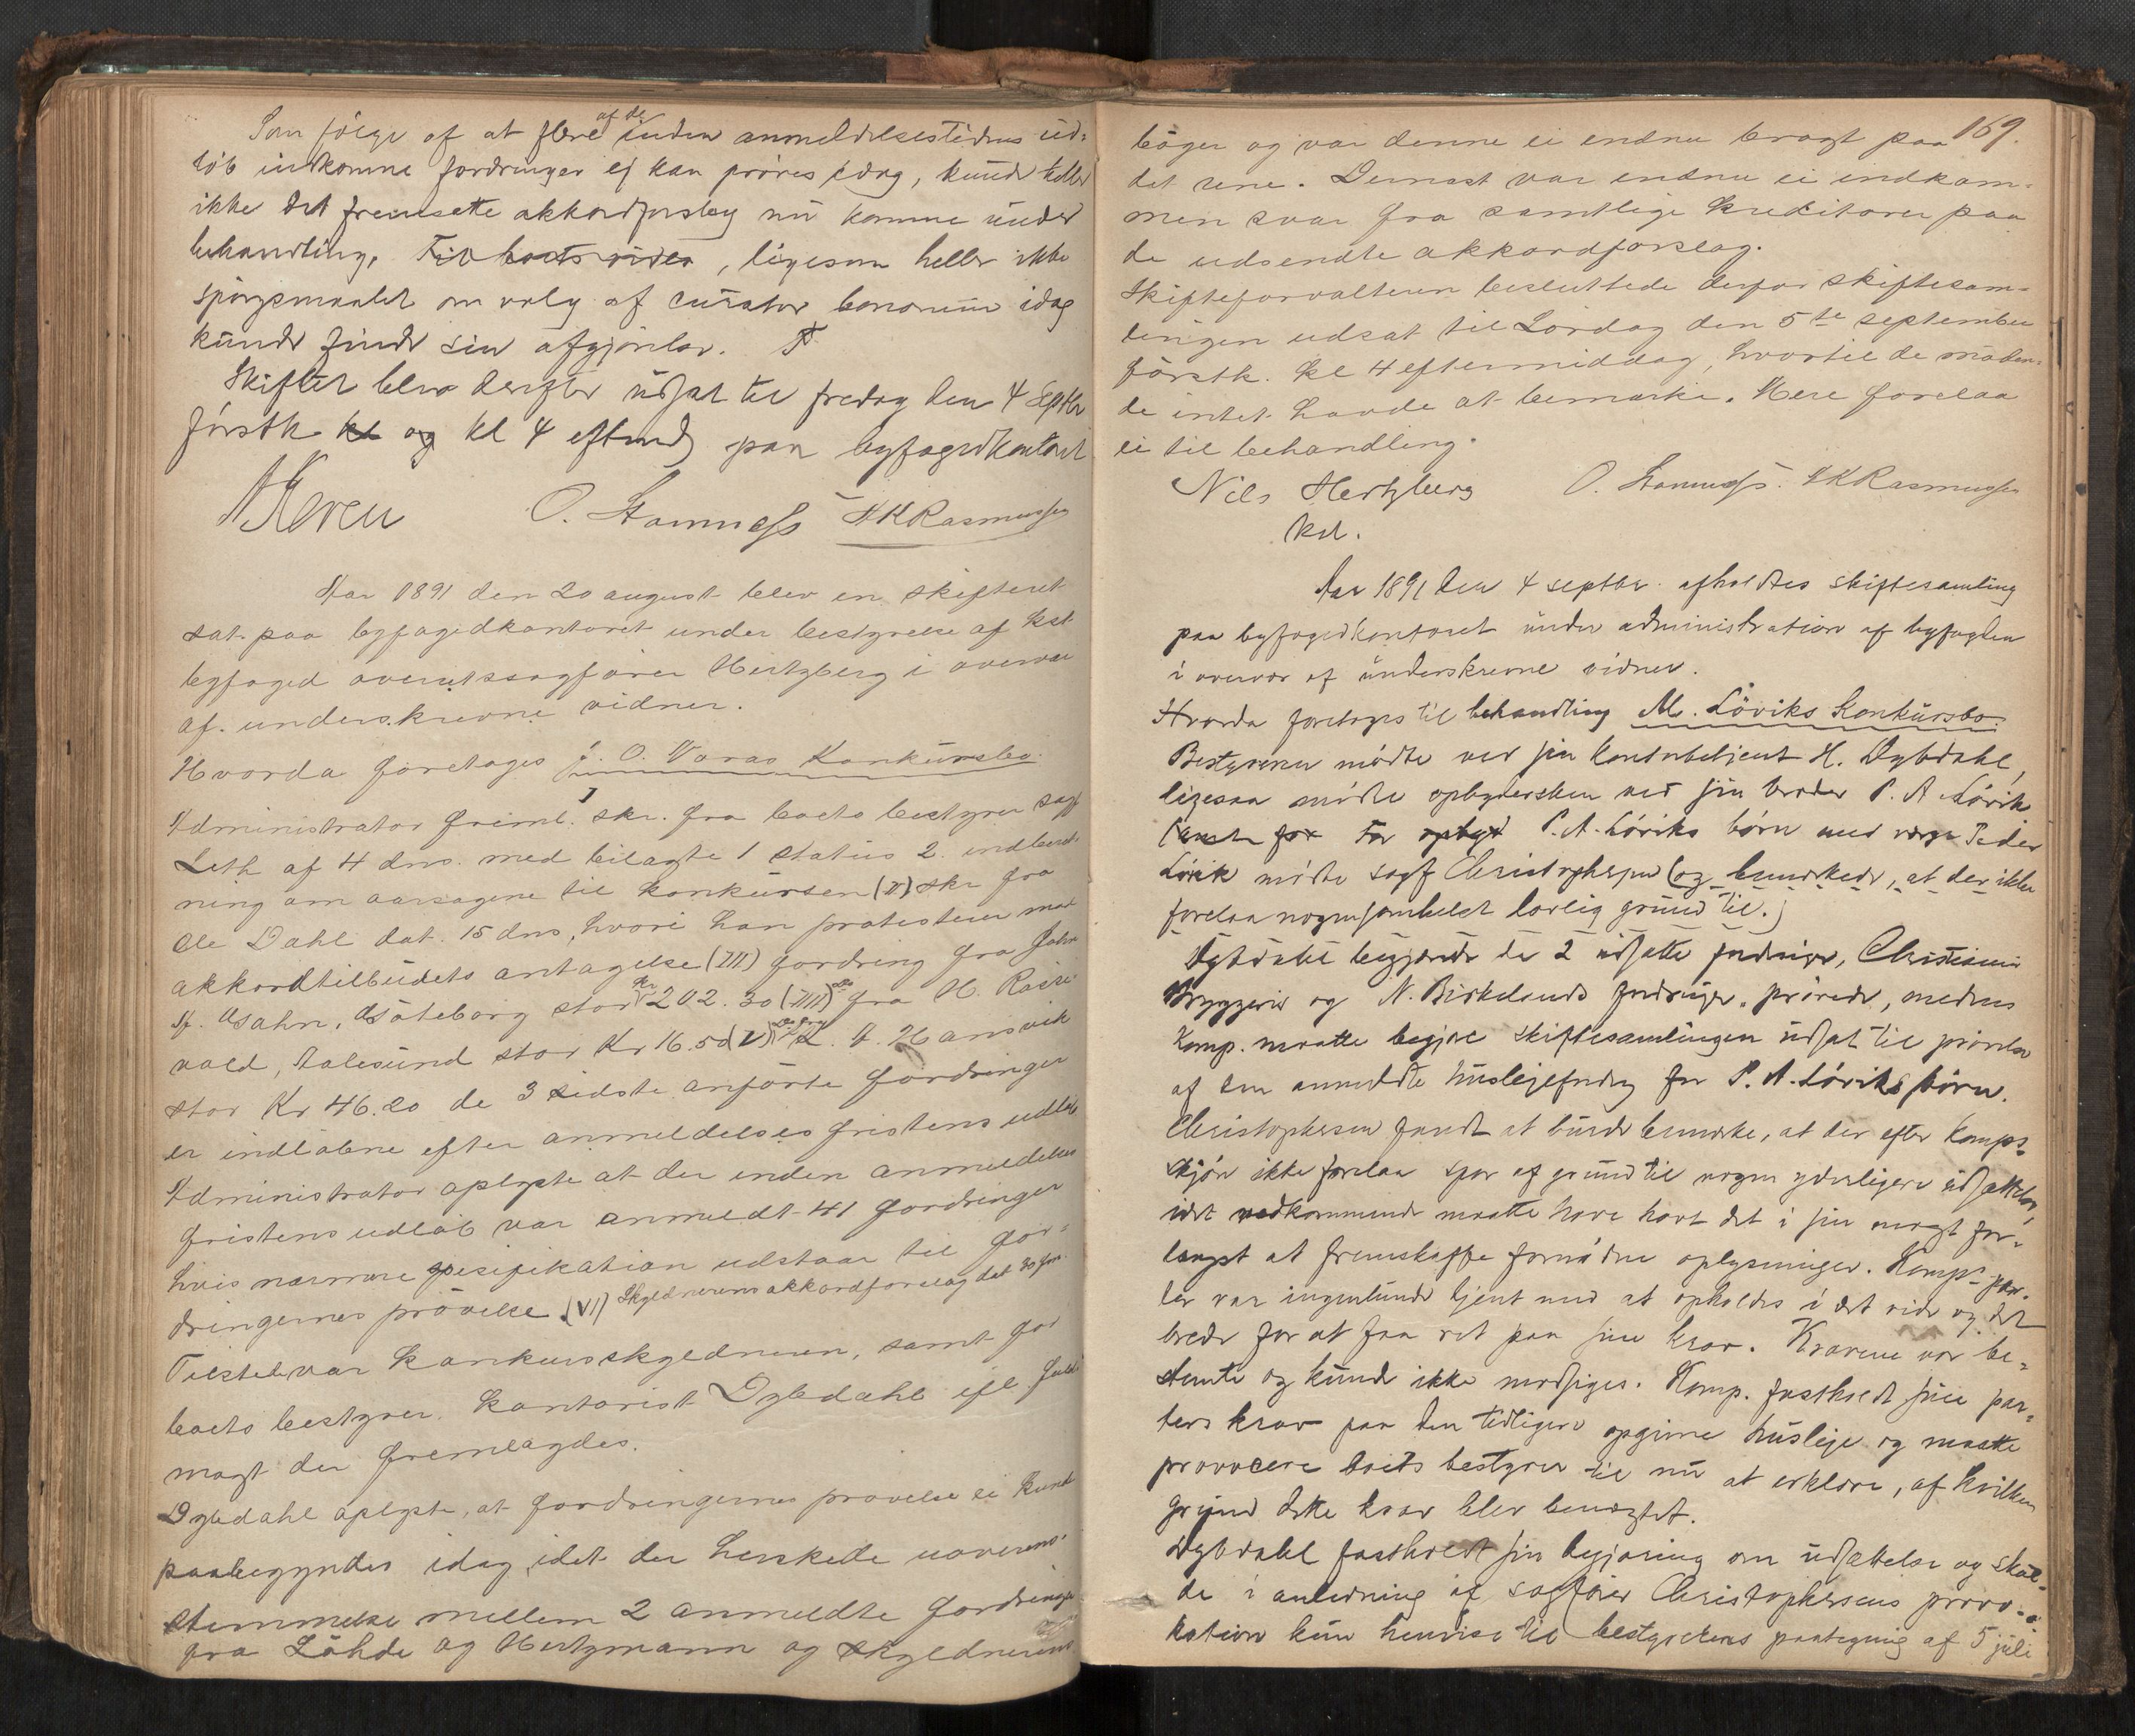 Som følge af at flere af de inden anmeldelsestidens ud-
løb indkomne fordringer ej kan prøves idag, kunde heller
ikke det fremsatte akkordforslag nu komme under
behandling, , ligesom heller ikke
spørgsmaalet om valg af curator bonorum idag
kunde finde sin afgjørelse.
Skiftet blev derefter udsat til fredag den 4 Septbr
førstk kl og kl 4 eftmd paa byfogedkontoret
O. Stamness HKRasmussen
Aar 1891 den 20 august blev en skifteret
sat paa byfogedkontoret under bestyrelse af kst
byfoged overretssagfører Hertzberg i overvær
af underskrevne vidner.
Hvorda foretoges J. O. Varas Konkursbo.
Administrator freml. I skr. fra boets bestyrer sagf
Leth af 4 dns. med bilagte 1 status 2. indberet-
ning om aarsagene til konkursen (II) skr fra
Ole Dahl dat. 15 dns, hvori han protesterer mod
akkordtilbudets antagelse (III) fordring fra John
Fr. Asahn, Gøteborg stor Kr 202.30 (IIII) do fra H. Raste
vold, Aalesund stor Kr 16.50 (V) do fra L. A. Hansvik
stor Kr 46.20 de 3 sidste anførte fordringer
er indløbne efter anmeldelsesfristens udløb
Administrator oplyste at der inden anmeldelses
fristens udløb var anmeldt 41 fordringer
hvis nærmere spesifikation udstaar til for-
dringernes prøvelse. (VI) Skyldnerens akkordforslag dat 30 f.m.
Tilstede var konkursskyldneren, samt for
boets bestyrer kontorist Dybdahl ifl fuld
magt der fremlagdes.
Dybdahl oplyste, at fordringernes prøvelse ei kunde
paabegyndes idag, idet der herskede uoverens-
stemmelse mellem 2 anmeldte fordringer
fra Løhde og Hertzmann og skyldnerens
169.
bøger og var denne ei endnu bragt paa
det rene. Dernæst var endnu ei indkom-
men svar fra samtlige kreditorer paa
de udsendte akkordforslag.
Skifteforvalteren besluttede derfor skiftesam-
lingen udsat til Lørdag den 5te september
førstk. kl 4 eftermiddag, hvortil de møden-
de intet havde at bemærke. Mere forelaa
ei til behandling.
Nils Hertzberg O. Stamness. HKRasmussen
kst.
Aar 1891 den 4 septbr. afholdtes skiftesamling
paa byfogedkontoret under administration af byfogden
i overvær af underskrevne vidner.
Hvorda foretoges til behandling M. Løviks Konkursbo.
Bestyreren mødte ved sin kontorbetjent H. Dybdahl,
ligesaa mødte opbydersken ved sin broder P. A. Løvik
for P. A. Løviks børn med værge Peder
Løvik mødte sagf Christophersen (og bemærkede, at der ikke
forelaa nogensomhelst lovlig grund til.)
Dybdahl begjærede de 2 udsatte fordringer, Christiania
Bryggeri og N. Birkelands fordringer prøvede, medens
Komp. maatte begjære skiftesamlingen udsat til prøvelse
af den anmeldte huslejefordring for P. A. Løviks børn.
Christophersen fandt at burde bemærke, at der efter Komps
skjøn ikke forelaa spor af grund til nogen yderligere udsættelse,
idet vedkommende maatte have havt det i sin magt for-
længst at fremskaffe fornødne oplysninger. Komps par-
ter var ingenlunde tjent med at opholdes i det vide og det
brede for at faa ret paa sine krav. Kravene var be-
stemte og kunde ikke modsiges. Komp. fastholdt sine par-
ters krav paa den tidligere opgivne husleje og maatte
provocere boets bestyrer til nu at erklære, af hvilken
grund dette krav blev benægtet.
Dybdahl fastholdt sin begjæring om udsættelse og skul-
de i anledning af sagfører Christophersens provo-
kation kun henvise til bestyrelsens paategning af 5 juli